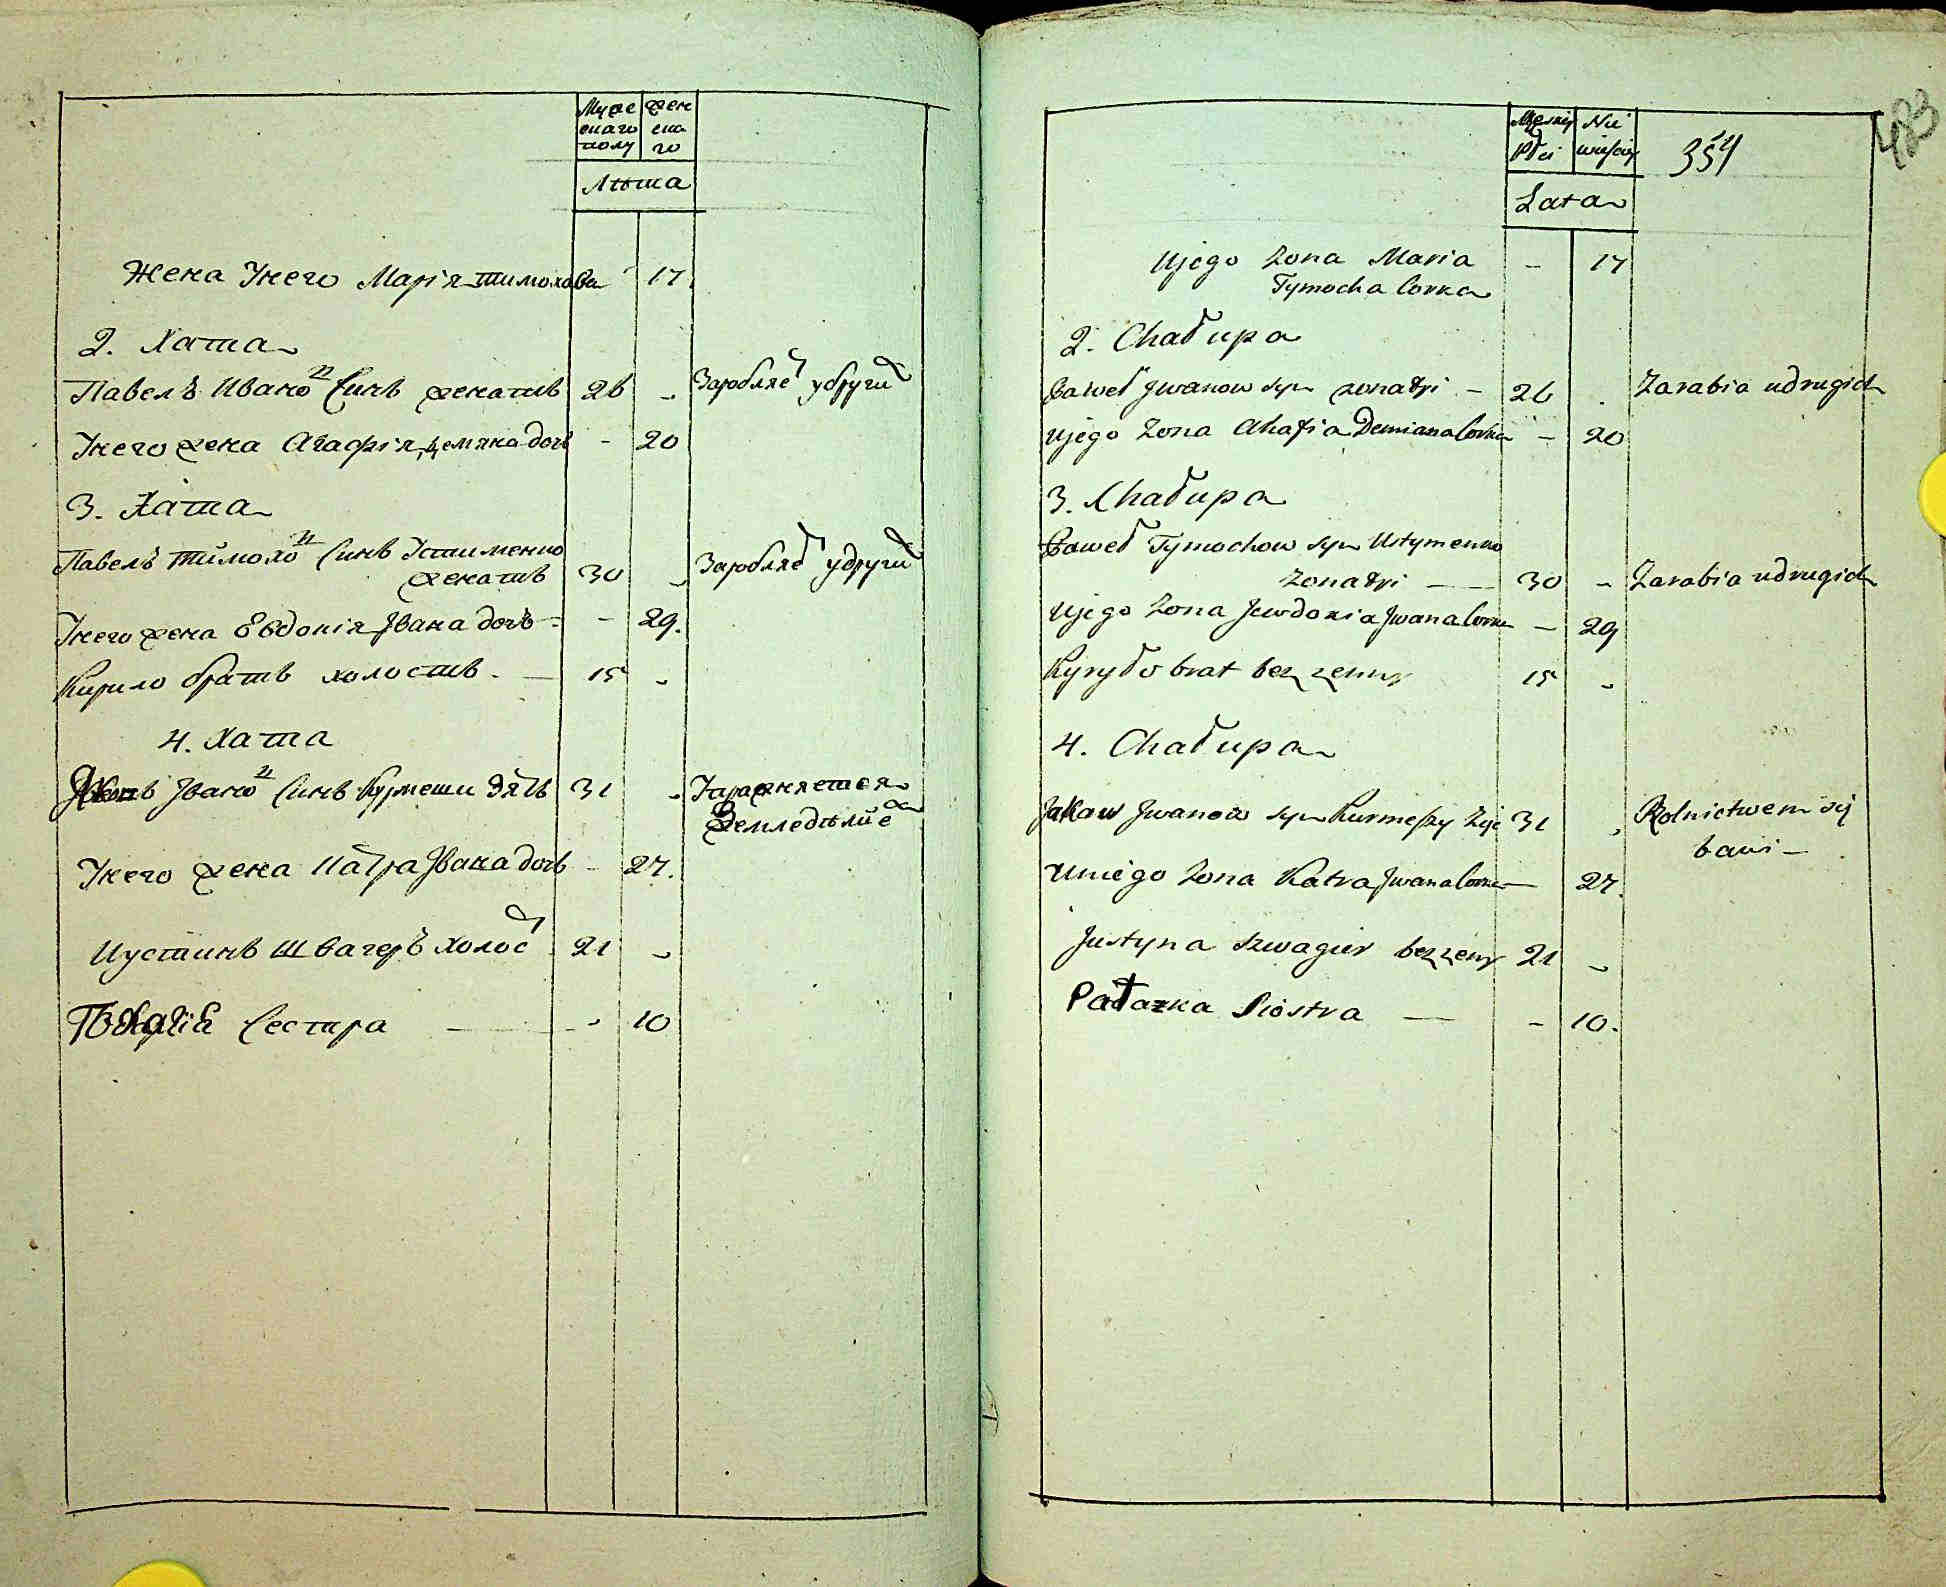 Муже
скаго
полу
Жен
ска
го
Лѣта
Жена Унего Марія Тимохова 17
2. Хата
Павелъ Ивановъ Синъ женатъ 26 - Заробляетъ удругихъ
Унего жена Агафія Демяна дочъ - 20
3. Хата
Павелъ Тимоховъ Синъ Устименко
женатъ 30 - Заробляетъ удругихъ
Унего жена Евдокія Івана дочъ - 29.
Кирило братъ холостъ. - 15 -
4. Хата
Івановъ Синъ Курмеши Зять 31 - Упражняется
Земледѣлиемъ
Унего жена Катра Івана дочъ - 27.
Иустинъ Швагеръ холостъ 21 -
Сестра - 10
Męskiej
Płci
Nie
wieściej
354
483
Lata
Ujego Zona Maria - 17
Tymocha Corka
2. Chałupa
Paweł Jwanow syn zonaty - 26 . Zarabia udrugich
Ujego Zona Ahafia Demiana Corka - 20
3. Chałupa
Paweł Tymochow syn Ustymenko
Zonaty - 30 - Zarabia udrugich
Ujego Zona Jewdokia Jwana Corka - 29
Kyryło brat bez zenny 15 -
4. Chałupa
Jakow Jwanow syn Kurmeszy Zięc 31 - Rolnictwem się
bawi -
Uniego Zona Katra Jwana Corka - 27.
Justyna Szwagier bezzeny 21 -
Pałazka Siostra - - 10.